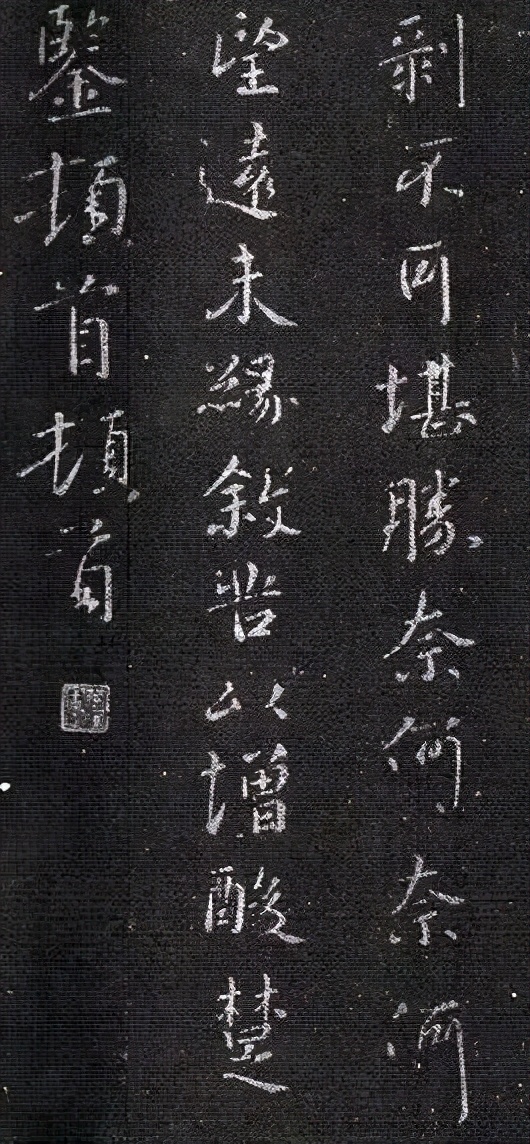 剝不可堪勝奈何奈何
望遠未緣敘苦以增酸楚
鑒頓首頓首